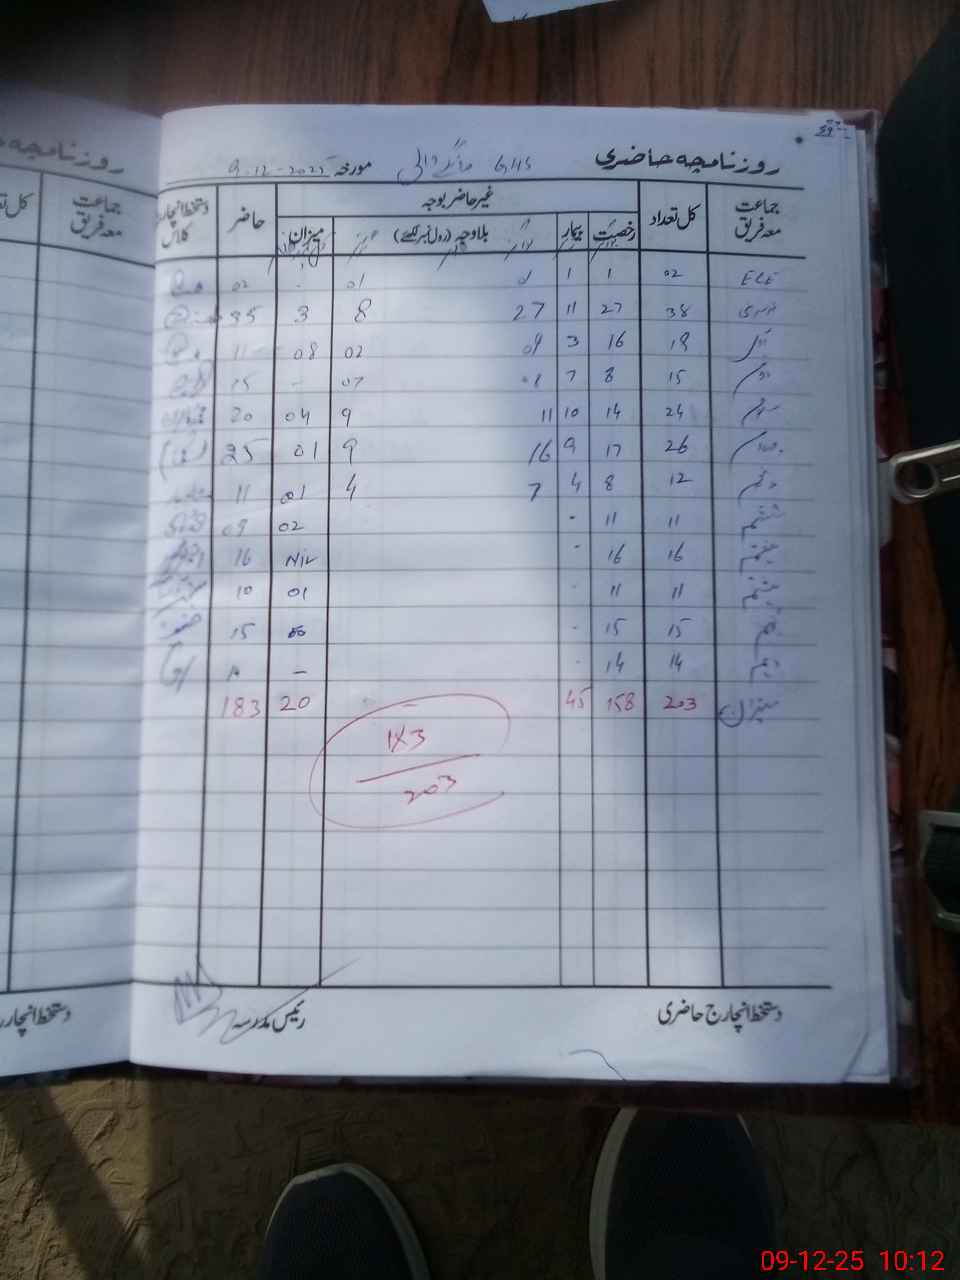 روزنامچہ حاضری GHS مورخہ 9-12-2025
جماعت معہ فریق کل تعداد غیر حاضر بوجہ حاضر دستخط انچارج کلاس
رخصت بیمار بلاوجہ (رول نمبر لکھئے) میزان
ECE 02 1 1 01 - 02
38 27 11 27 8 3 35
اول 19 16 3 09 02 08 11
دوم 15 8 7 07 - 15
سوم 24 14 10 11 9 04 20
26 17 9 16 9 01 25
پنجم 12 8 4 7 4 01 11
ششم 11 11 - 02 09
ہفتم 16 16 - Nil 16
ہشتم 11 11 - 01 10
نہم 15 15 - 15
دہم 14 14 - -
میزان 203 158 45 20 183
183
203
دستخط انچارج حاضری رئیس مدرسہ
روزنامچہ
جماعت معہ فریق
دستخط انچارج
09-12-25 10:12